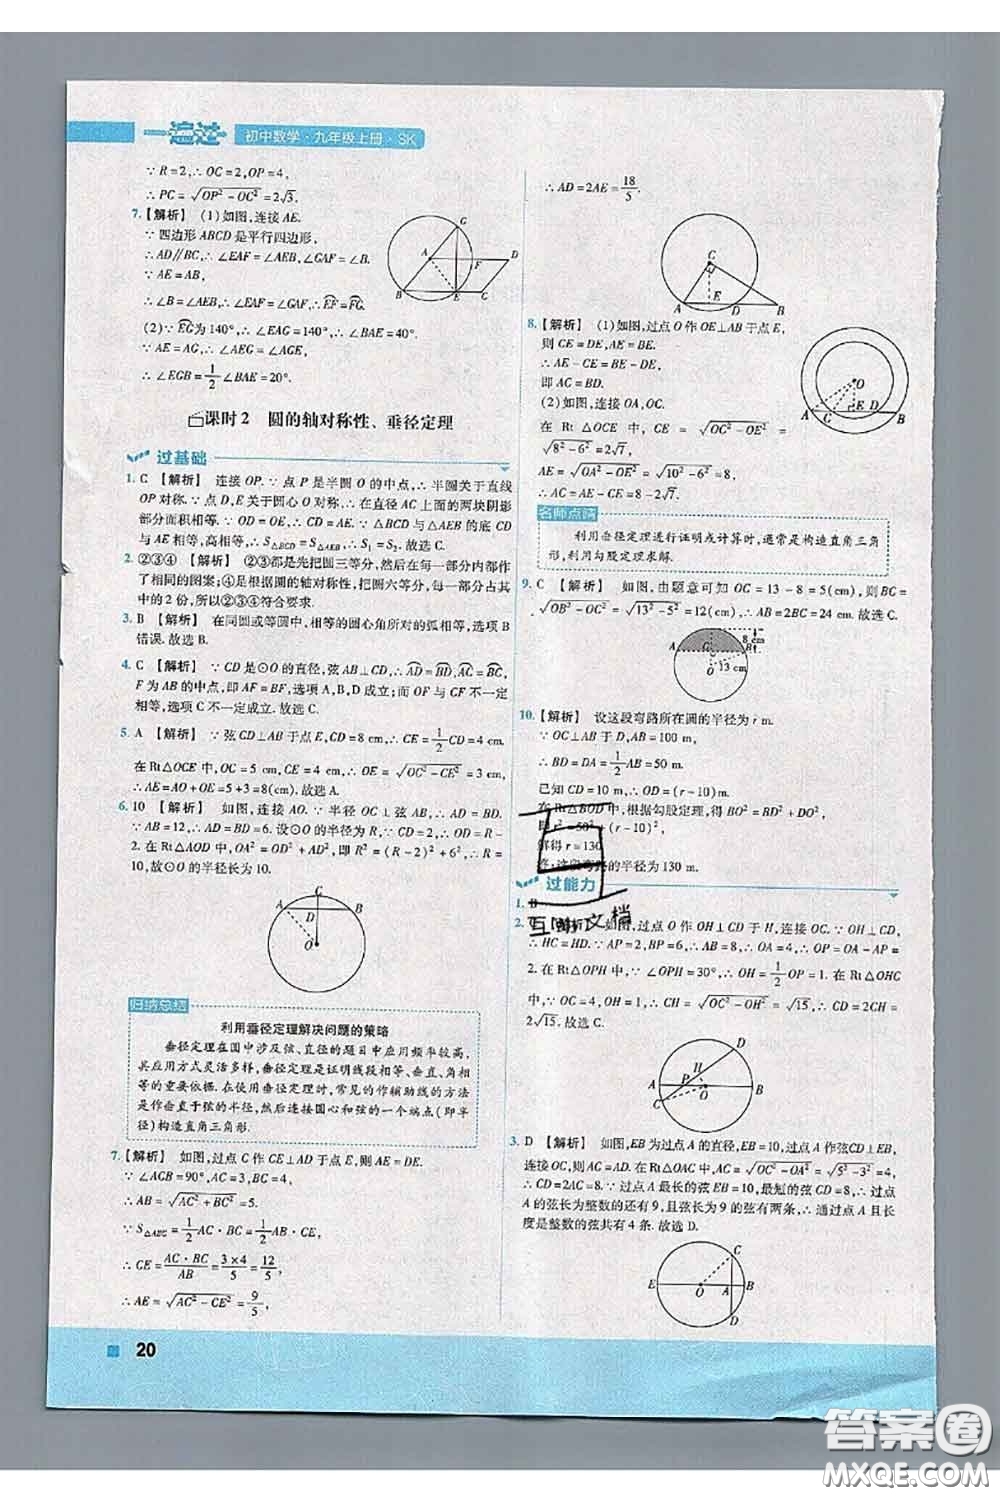 一遍过 初中数学·九年级上册·SK
∵R=2,∴OC=2,OP=4,
∴PC=√(OP²-OC²)=2√3.
7.【解析】 (1)如图,连接AE.
∵四边形ABCD是平行四边形,
∴AD∥BC,∴∠EAF=∠AEB,∠GAF=∠B.
∵AE=AB,
∴∠B=∠AEB,∴∠EAF=∠GAF,∴EF=FG.
(2)∵EG为140°,∴∠EAG=140°,∴∠BAE=40°.
∵AE=AG,∴∠EGA=∠AGE,
∴∠EGB=1/2∠BAE=20°.
A B C D E F G
课时2 圆的轴对称性、垂径定理
过基础
1. C 【解析】 连接OP.∵点P是半圆O的中点,∴半圆关于直线
OP对称.∵点D,E关于圆心O对称,∴在直径AC上面的两块阴影
部分面积相等.∵OD=OE,∴CD=AE.∵△BCD与△AEB的底CD
与AE相等,高相等,∴S△BCD=S△AEB,∴S₁=S₂.故选C.
2. ②③④ 【解析】 ②③都是先把圆三等分,然后在每一部分内都作
了相同的图案;④是根据圆的轴对称性,把圆六等分,每一部分占其
中的2份,所以②③④符合要求.
3. B 【解析】 在同圆或等圆中,相等的圆心角所对的弧相等,选项B
错误.故选B.
4. C 【解析】 ∵CD是⊙O的直径,弦AB⊥CD,∴AD=BD,AC=BC,
F为AB的中点,即AF=BF,选项A,B,D成立;而OF与CF不一定
相等,选项C不一定成立.故选C.
5. A 【解析】 ∵弦CD⊥AB于点E,CD=8 cm,∴CE=1/2CD=4 cm.
在Rt△OCE中,OC=5 cm,CE=4 cm,∴OE=√(OC²-CE²)=3 cm,
∴AE=AO+OE=5+3=8(cm).故选A.
6. 10 【解析】 如图,连接AO.∵半径OC⊥弦AB,∴AD=BD.
∵AB=12,∴AD=BD=6.设⊙O的半径为R,∵CD=2,∴OD=R-
2.在Rt△AOD中,OA²=OD²+AD²,即R²=(R-2)²+6²,∴R=
10,故⊙O的半径长为10.
A B C D O
归纳总结
利用垂径定理解决问题的策略
垂径定理在圆中涉及弦、直径的题目中应用频率较高,
其应用方式灵活多样,垂径定理是证明线段相等、垂直、角相
等的重要依据.在使用垂径定理时,常见的作辅助线的方法
是作垂直于弦的半径,然后连接圆心和弦的一个端点(即半
径)构造直角三角形.
7.【解析】 如图,过点C作CE⊥AD于点E,则AE=DE.
∵∠ACB=90°,AC=3,BC=4,
∴AB=√(AC²+BC²)=5.
∵S△ABC=1/2AC·BC=1/2AB·CE,
∴CE=AC·BC/AB=3×4/5=12/5,
∴AE=√(AC²-CE²)=9/5,
∴AD=2AE=18/5.
C A E D B
8.【解析】 (1)如图,过点O作OE⊥AB于点E,
则CE=DE,AE=BE.
∴AE-CE=BE-DE,
即AC=BD.
(2)如图,连接OA,OC.
在Rt△OCE中,CE=√(OC²-OE²)=
√(8²-6²)=2√7,
AE=√(OA²-OE²)=√(10²-6²)=8,
∴AC=AE-CE=8-2√7.
O A C E D B
名师点睛
利用垂径定理进行证明或计算时,通常是构造直角三角
形,利用勾股定理求解.
9. C 【解析】 如图,由题意可知OC=13-8=5(cm),则BC=
√(OB²-OC²)=√(13²-5²)=12(cm),∴AB=2BC=24 cm.故选C.
A C B O 8 cm 13 cm
10.【解析】 设这段弯路所在圆的半径为r m.
∵OC⊥AB于D,AB=100 m,
∴BD=DA=1/2AB=50 m.
已知CD=10 m,∴OD=(r-10)m.
在Rt△BOD中,根据勾股定理,得BO²=BD²+DO²,
即r²=50²+(r-10)²,
解得r=130.
答:这段弯路的半径为130 m.
过能力
1. B
2. C 【解析】 如图,过点O作OH⊥CD于H,连接OC.∵OH⊥CD,
∴HC=HD.∵AP=2,BP=6,∴AB=8,∴OA=4,∴OP=OA-AP=
2.在Rt△OPH中,∵∠OPH=∠APC=30°,∴OH=1/2OP=1.在Rt△OHC
中,∵OC=4,OH=1,∴CH=√(OC²-OH²)=√15,∴CD=2CH=
2√15.故选C.
互动文档
A P H O B C D
3. D 【解析】 如图,EB为过点A的直径,EB=10,过点A作弦CD⊥EB,
连接OC,则OA=3,OC=5.在Rt△OAC中,AC=√(OC²-OA²)=√(5²-3²)=4,
∴CD=2AC=8.∵过点A最长的弦EB=10,最短的弦CD=8,∴过点A
的弦的弦长为整数的还有9,且弦长为9的弦有两条,∴通过点A且长
度是整数的弦共有4条.故选D.
E O A B C D
20
答案圈
MXQE.COM